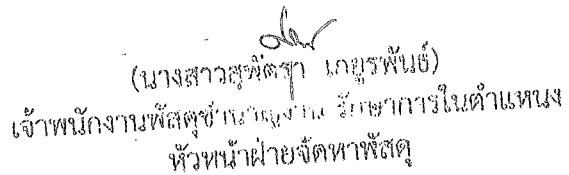 (นางสาวสุพัตรา เกยูรพันธ์)
เจ้าพนักงานพัสดุชำนาญงาน รักษาการในตำแหน่ง
หัวหน้าฝ่ายจัดหาพัสดุ